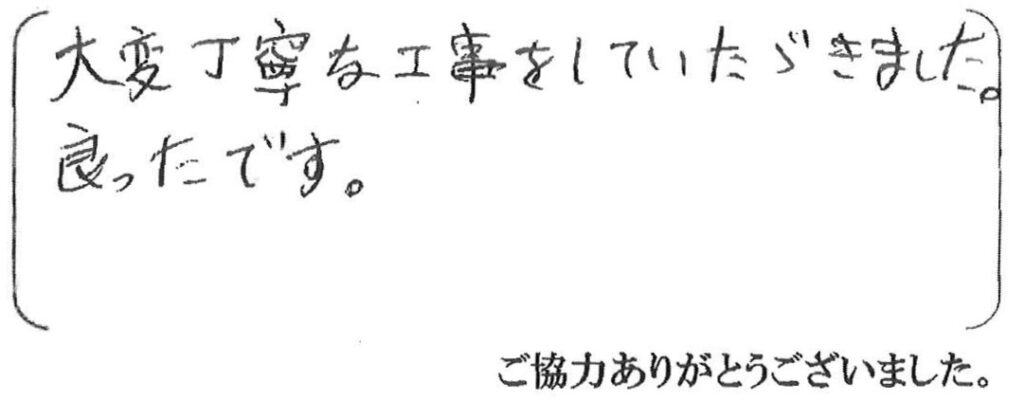 大変丁寧な工事をしていたゞきました。
良ったです。
ご協力ありがとうございました。